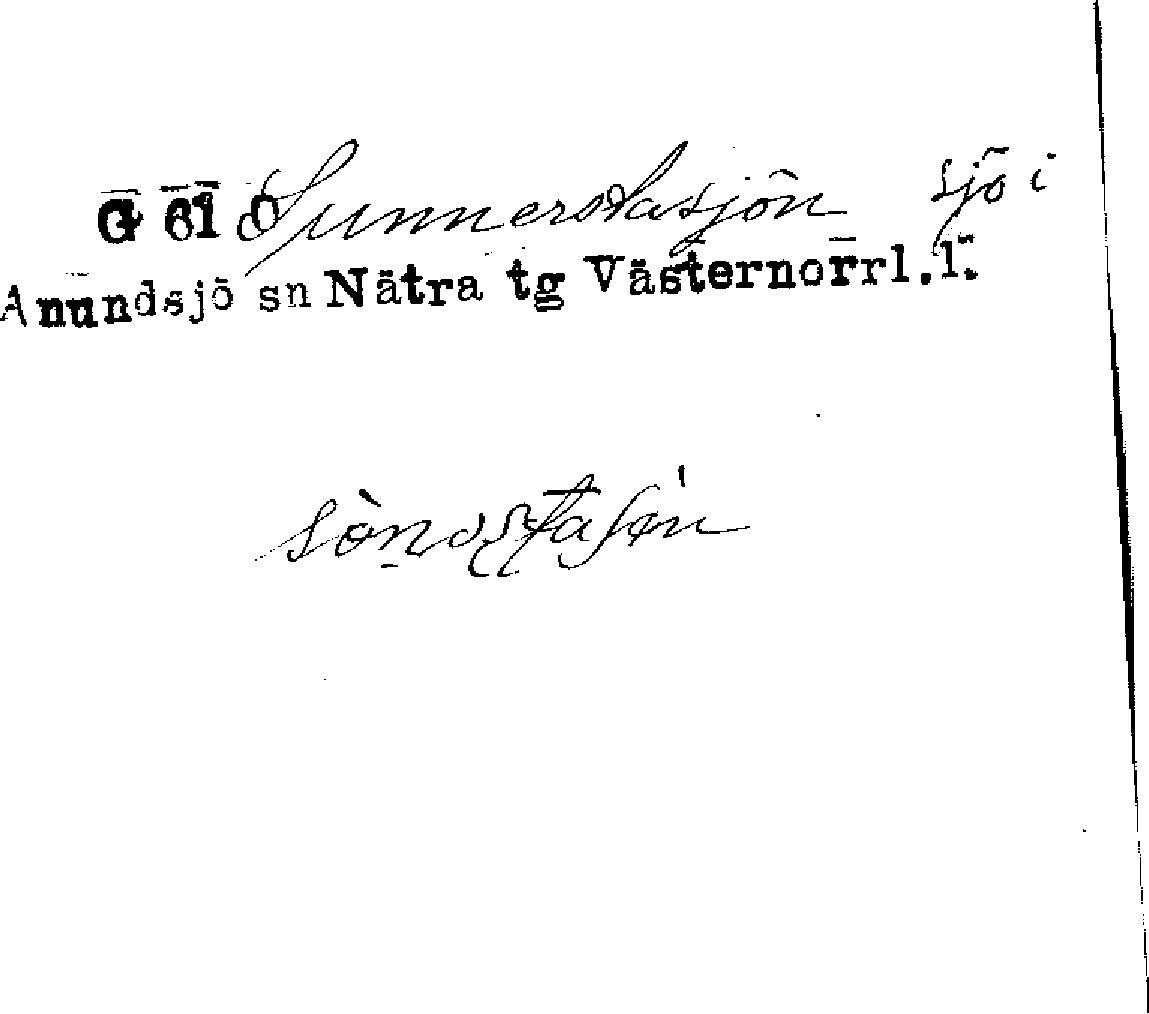 G 61 O Sunnerstasjön sjö i
Anundsjö sn Nätra tg Västernorrl.l.